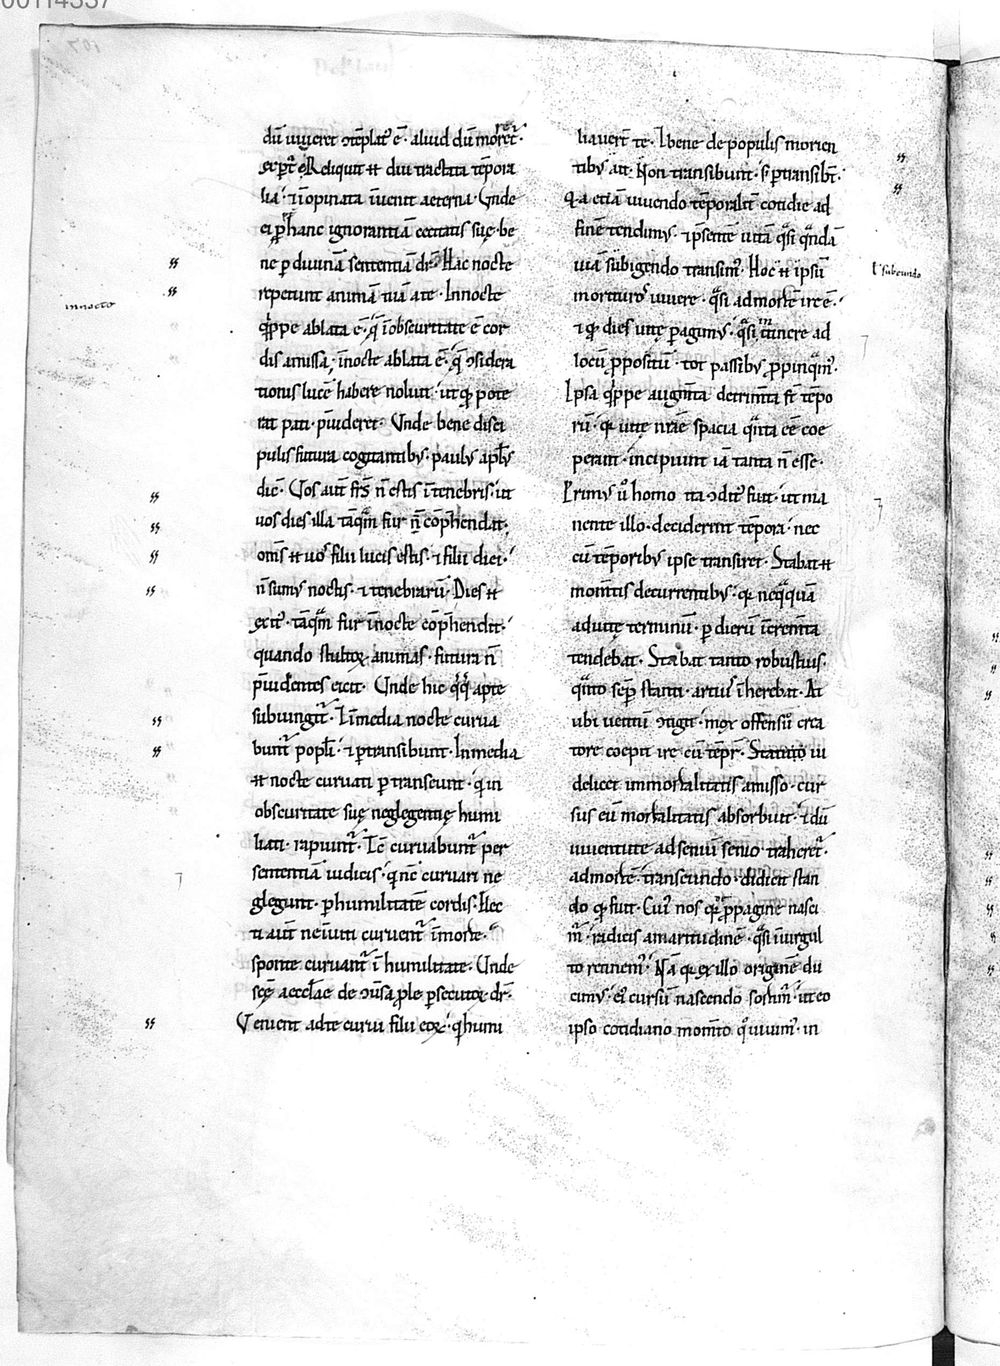 dū uiueret ɔtēplatꝰ ē· aliud dū moreret᷑·
exꝑtꝰ ē. Reliquit ⁊ diu tractata tēpora
lia· ⁊ īopinata īuenit aeterna· Unde
ei ꝓ hanc ignorantiā cecitatis suę· be
ne ꝑ diuinā sententiā dr̄· Hac nocte
repetunt animā tuā a te· In nocte
qͥppe ablata ē· q̄ ī obscuritate ē cor
dis amissa; ī nocte ablata ē· q̄ ɔsidera
tionis lucē habere noluit· ut qđ pote
rat pati· p̄uideret· Unde bene disci
pulis futura cogitantibꝰ· paulus apłs
dic̄· Uos aut̄ fr̄s n̄ estis ī tenebris· ut
uos dies illa tāqͣm fur n̄ cōp̄hendat·
om̄s ⁊ uos filii lucis estis· ⁊ filii diei·
n̄ sumꝰ noctis· ⁊ tenebrarū· Dies ⁊
exitꝰ· tāqͣm fur ī nocte cōp̄hendit·
quando stultoꝝ animas· futura n̄
p̄uidentes eicit· Unde hic qͦqͣ apte
subiungit᷑· Ī media nocte curua
bunt᷑ popłi· ⁊ ꝑtransibunt· In media
⁊ nocte curuati ꝑtranseunt· qͥ in
obscuritate suę neglegentię humi
liati· rapiunt᷑· Tc̄ curuabunt᷑ per
sententiā iudicis· qͥ nc̄ curuari ne
glegunt· ꝑ humilitatē cordis. Elec
ti aut̄ ne inuiti curuent᷑ ī morte·
sponte curuant᷑ ī humilitate· Unde
scę aeccłae de ɔuersa ꝓle ꝑsecutoꝝ dr̄·
Uenient ad te curui filii eoꝝ· qͥ humi
liauerr̄ te· Et bene de populis morien
tibꝰ ait· Non transibunt· s; ꝑtransibt̄·
Quia etiā uiuendo tēporalit̄ cotidie ad
finē tendimꝰ· ⁊ p̄sentē uitā qͣsi qͣndā
uiā subigendo transimꝰ· Hoc ⁊ ipsū
morituros uiuere· qͣsi ad mortē ire ē·
⁊ qđ dies uitę ꝑagimꝰ· qͣsi itinere ad
locū ꝓpositū· tot passibꝰ ꝓpinqͣmꝰ·
Ipsa qͥppe augm̄ta detrim̄ta st̄ tēpo
rū· qr̄ uitę nr̄ae spacia qͣnta eē coe
perant· incipiunt iā tanta n̄ esse·
Primꝰ ů homo ita ɔditꝰ fuit· ut ma
nente illo· deciderent tēpora· nec
cū tēporibꝰ ipse transiret· Stabat ⁊
mom̄tis decurrentibꝰ· qr̄ neqͣquā
ad uitę terminū· ꝑ dierū īcrem̄ta
tendebat· Stabat tanto robustius·
qͣnto sēꝑ stanti· artius īherebat· At
ubi uetitū ɔtigit· mox offensū crea
tore coepit ire cū tēpr̄· Statuto ui
delicet immortalitatis amisso· cur
sus eū mortalitatis absorbuit· ⁊ dū
iuuentute ad seniū senio· traheret᷑·
ad mortē· transeundo· didicit stan
do qđ fuit· Cuiꝰ nos qr̄ ꝓpagine nasci
mꝰ· radicis amaritudinē· qͣsi ī uirgul
to retinemꝰ· Nā qr̄ ex illo originē du
cimꝰ· eiꝰ cursū nascendo sortimꝰ· ut eo
ipso cotidiano mom̄to qͦ uiuimꝰ· in
in nocte
ł subeundo